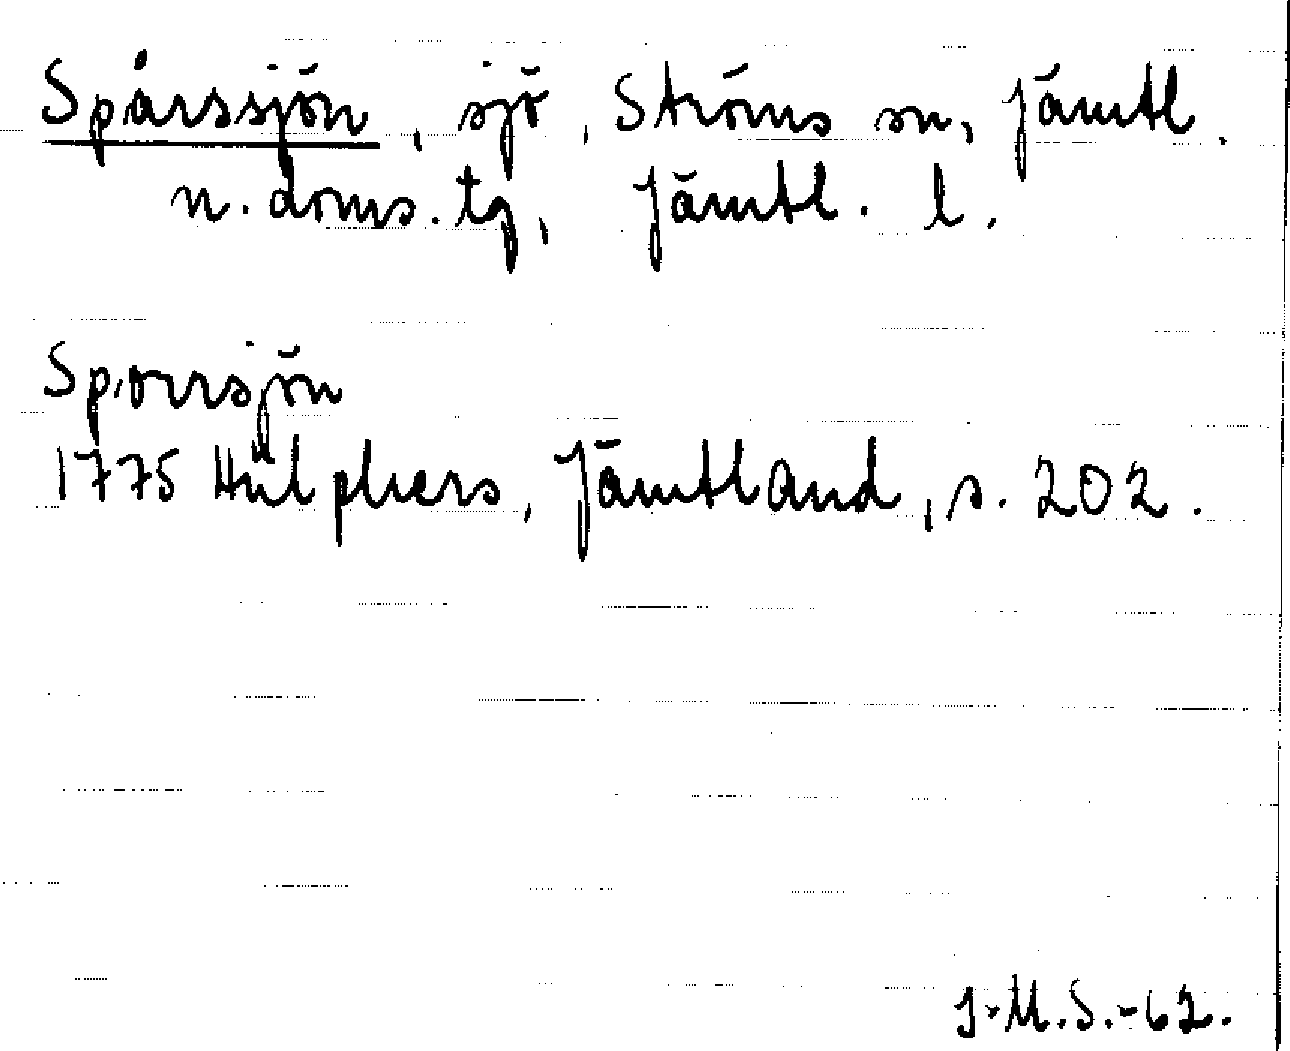 Spårssjön, sjö, Ströms sn, Jämtl.
n. doms. tg, Jämtl. l.
Sporrsjön
1775 Hülphers, Jämtland, s. 202.
J.M.S.-62.